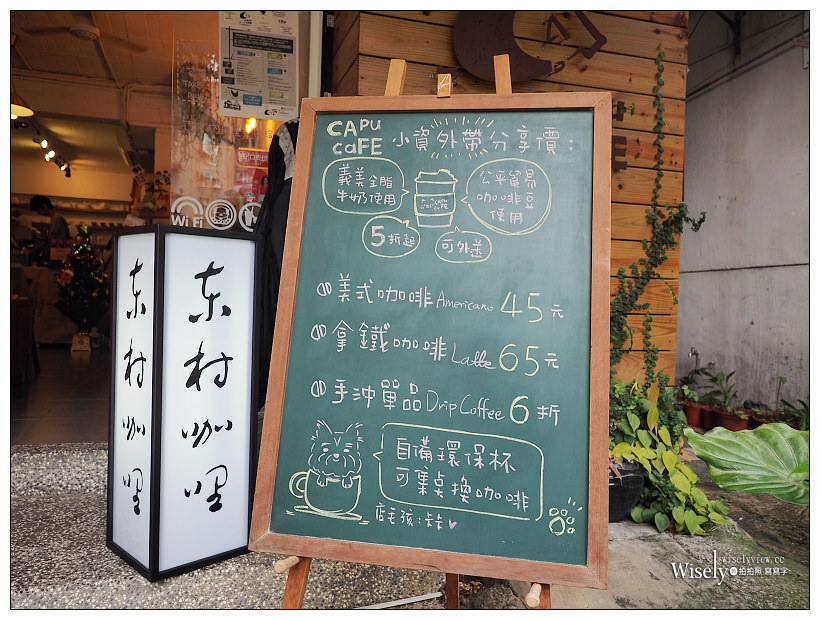 CAPU
CaFE
小資外帶分享價：
義美全脂
牛奶使用
公平貿易
咖啡豆
使用
5折起
可外送
美式咖啡 Americano 45元
拿鐵咖啡 Latte 65元
手沖單品 Drip Coffee 6折
自備環保杯
可集點換咖啡
店毛孩：卡卡
WiFi
东村咖哩
东村咖哩
wiselyview.cc
Wisely 拍拍照 寫寫字